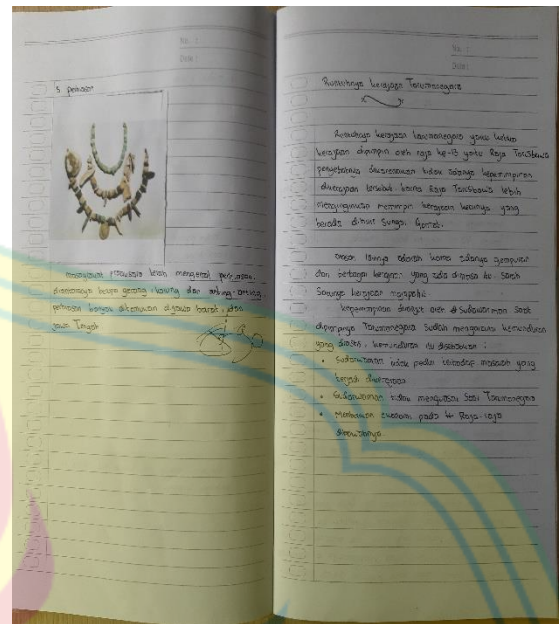 No. :
Date :
5. perhiasan
masyarakat prasejarah telah mengenal perhiasan,
diantaranya berupa gelang, kalung dan anting-anting
perhiasan banyak ditemukan dijawa barat, dan
Jawa Tengah
No. :
Date :
Runtuhnya kerajaan Tarumanegara
Runtuhnya kerajaan tarumanegara yaitu ketika
kerajaan dipimpin oleh raja ke-13 yaitu Raja Tarusbawa
penyebabnya dikarenakan tidak adanya kepemimpinan
dikerajaan tersebut karna Raja Tarusbawa lebih
menginginkan memimpin kerajaan kecilnya yang
berada dihilir Sungai Gomati.
alasan lainnya adalah karna adanya gempuran
dari beberapa kerajaan yang ada dimasa itu. Salah
Satunya kerajaan majapahit
kepemimpinan dilanjut oleh Sudawarman Saat
dipimpinnya Tarumanegara Sudah mengalami kemunduran
yang drastis, kemunduran itu disebabkan :
• Sudawarman tidak peduli terhadap masalah yang
terjadi dikerajaan
• Sudawarman tidak menguasai Soal Tarumanegara
• Memberikan otonomi pada Raja-raja
dibawahnya